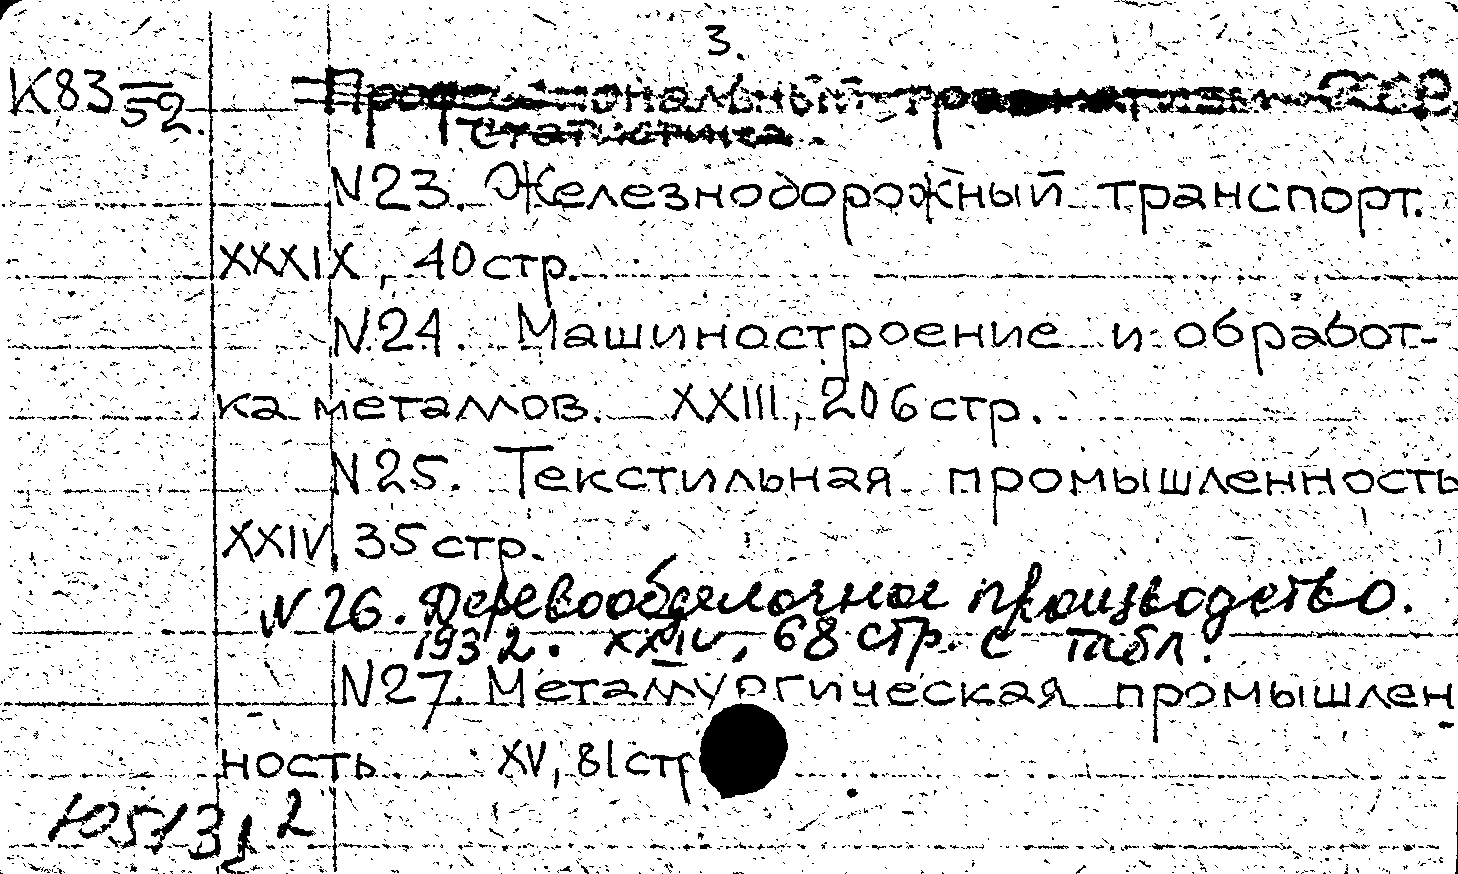 3.
К83
52.
N23. Железнодорожный транспорт.
XXXIX, 40 стр.
N24. Машиностроение и обработ-
ка металлов. XXIII, 206 стр.
N25. Текстильная промышленность
XXIV, 35 стр.
N26. Деревообделочное производство.
1932. XXIV, 68 стр. с табл.
N27. Металургическая промышлен-
ность XV, 81 стр